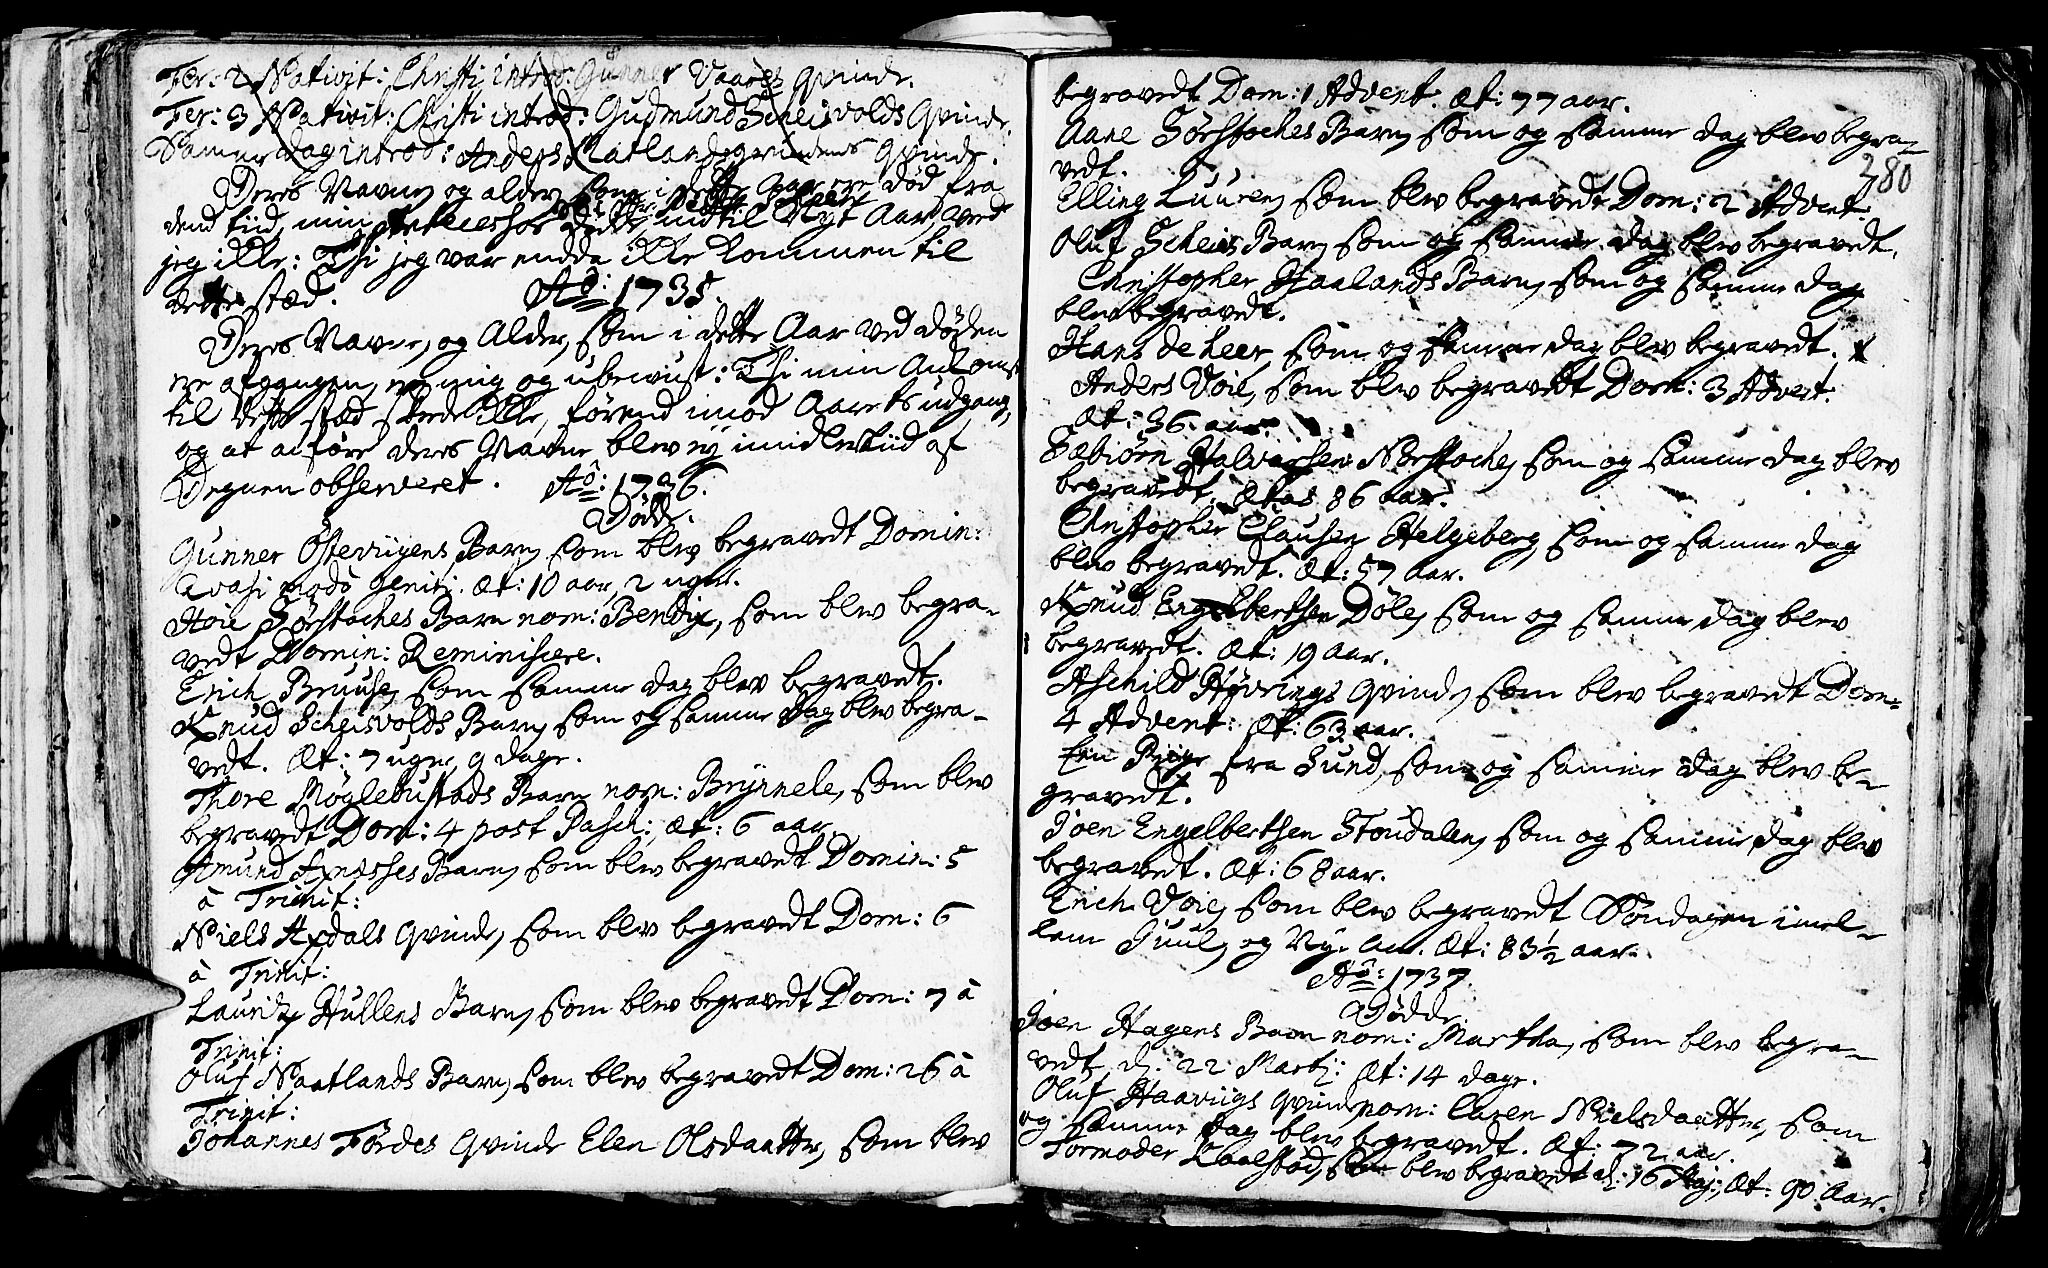 Fer: 2 Nativit: Christi introd: Gunner Vaages Qvinde.
Fer: 3 Nativit: Christi introd: Gudmund Scheisvolds Qvinde.
Samme Dag introd: Anders Qvinde.
Deres Navne og alder, som i dette Aar ere død fra
dend tiid, min Antecessor døde, indtil Nyt Aar, veed
jeg ikke: Thi jeg var endda ikke kommen til
dette stæd.
Aõ: 1735.
Deres Navne, og Alder, som i dette Aar ved døden
ere afgangen, er mig og ubewust: Thi min Ankomst
til dette stæd skeede ikke, førend imod Aarets udgang,
og at anføre deres Navne blev ej imidlertiid af
Degnen observeret.
Aõ: 1736.
Døde.
Gunner Osteviigens Barn, som blev begravedt Domin:
Qvasi modo geniti: Æt: 10 aar, 2 uger.
Aoie Sørstoches Barn nom: Bendix, som blev begra-
vedt Domin: Reminiscere.
Erich Bruuse, som samme dag blev begravedt.
Knud Scheisvolds Barn, som og samme dag blev begra-
vedt. Æt: 7 uger, 9 dage.
Thore Møglebustads Barn nom: Brynnele, som blev
begravedt Dom: 4 post Pasch: Æt: 6 aar.
Amund Barn, som blev begravedt Domin: 5
à Trinit:
Niels Axdals Qvinde, som blev begravedt Dom: 6
à Trinit:
Lauritz Hullens Barn, som blev begravedt Dom: 7 à
Trinit:
Oluf Naatlands Barn, som blev begravedt Dom: 26 à
Trinit:
Johannes Førdes Qvinde Elen Olsdaatter, som blev
begravedt Dom: 1 Advent. Æt: 77 aar.
Aane Sørstoches Barn, som og samme dag blev begra-
vedt.
280
Elling Luuren, som blev begravedt Dom: 2 Advent.
Oluf Scheies Barn, som og samme dag blev begravedt.
Christopher Haalands Barn, som og samme dag
blev begravedt.
Hans de heer, som og samme dag blev begravedt.
Anders Voie, som blev begravedt Dom: 3 Advent.
Æt: 36 aar.
Tæbiørn Halvorsen Norstoche, som og samme dag blev
begravedt. Ætas 86 aar.
Christopher Clausen Helgeberg, som og samme dag
blev begravedt. Æt: 57 aar.
Knud Engelbertsen Døle, som og samme dag blev
begravedt. Æt: 19 Aar.
Aschild Høvrings Qvinde, som blev begravedt Dom:
4 Advent: Æt: 63 aar.
Een Piige fra Sund, som og samme dag blev be-
gravedt.
Joen Engelbertsen Stoudalen, som og samme dag blev
begravedt. Æt: 68 aar.
Erich Voie, som blev begravedt Søndagen imel-
lem Juul, og Nye Aar. Æt: 83 1/2 aar.
Aõ: 1737.
Døde.
Joen Hagens Barn nom: Martha, som blev begra-
vedt, d: 22 Martij: Æt: 14 dage.
Oluf Haaviigs Qvinde nom: Caren Nielsdaatter, som
og samme dag blev begravedt. Æt: 72 aar.
Tormoder som blev begravedt d: 16 Maj: Æt: 90 Aar.